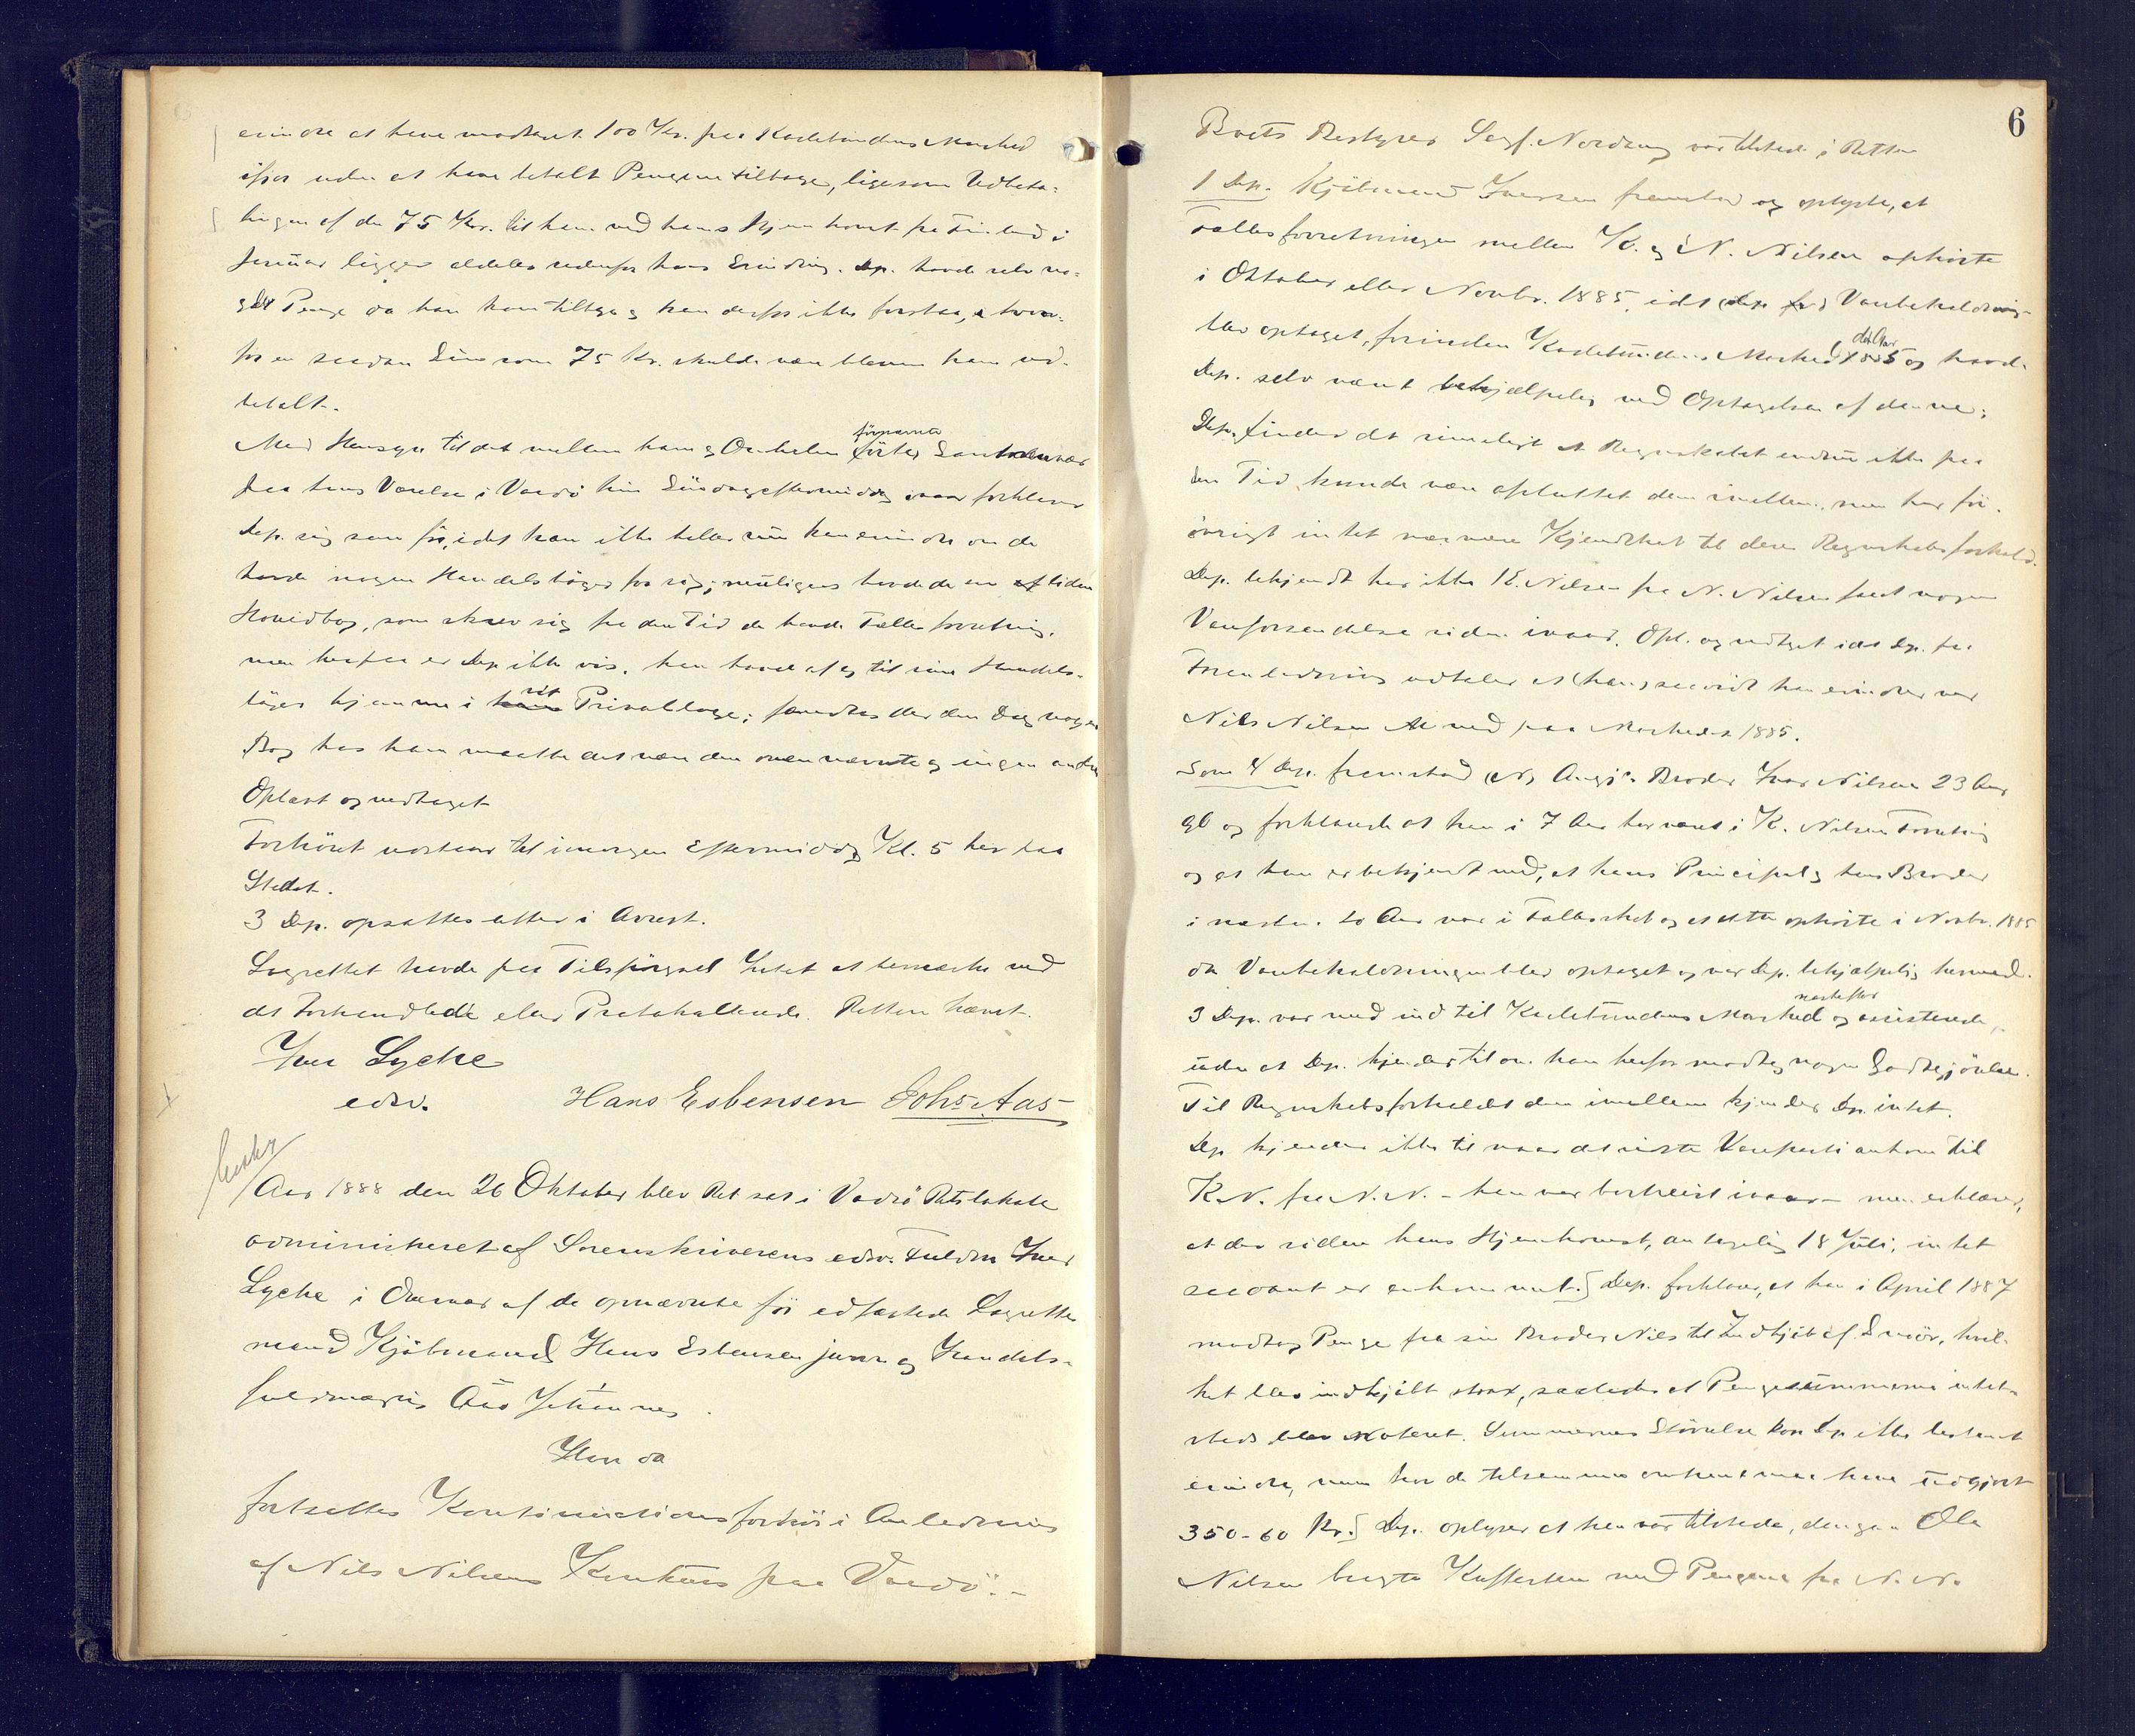 erindre at have modtaget 100 Kr. paa Karlebundens Marked
ifjor uden at have betalt Pengene tilbage, ligesom Udbeta-
lingen af de 75 Kr. til ham ved hans Hjemkomst fra Finland i
Januar ligger aldeles udenfor hans Erindring. Dep. havde selv no-
get Penge da han kom tilbage og kan derfor ikke forstaa, hvor-
for en saadan Sum som 75 Kr. skulde være bleven ham ud-
betalt.
Med Hensyn til det mellem ham og Onkelen førte
fornævnte
paa hans Værelse i Vardö hin Søndagseftermiddag ivaar forklarer
Dep. sig som før, idet han ikke heller nu kan erindre om de
havde nogen Handelsbøger for sig; muligens havde de en liden
Hovedbog, som skrev sig fra den Tid de havde Fællesforretning,
men herpaa er Dep. ikke vis. han havde af og til sine Handels-
bøger hjemme i sit Privatlogi; fandtes der den Dag nogen
Bog hos ham maatte det være den ovennævnte og ingen anden
Oplæst og vedtaget
Forhöret udsættes til imorgen Eftermiddag Kl. 5 her paa
Stedet.
3 Dep. opsattes atter i Arrest.
Lagrettet havde paa Tilspörgsel Intet at bemærke ved
det Forhandlede eller Protokollerede. Retten hævet.
Iver Lycke
edsv. Hans Esbensen Johs Aas
Aar 1888 den 26 Oktober blev Ret sat i Vadsö Retslokale
administreret af Sorenskriverens edsv. Fuldm. Iver
Lycke i Overvær af de opnævnte før edfæstede Lagrettes-
mænd Kjöbmand Hans Esbensen junr og Handels-
fuldmægtig Aas Johannes.
Hvor da
fortsattes Kontinuationsforhör i Anledning
af Nils Nilsens Konkurs paa Vardö. -
6
Boets Bestyrer Sagf. Nordang var tilstede i Retten
1 Dep. Kjöbmand Iversen fremstod og oplyste, at
Fællesforretningen mellem K. og N. Nilsen ophørte
i Oktober eller Novbr. 1885, idet Varebeholdning-
blev optaget, forinden Karlebundens Marked 1885 og havde
det Aar
Dep. selv været behjælpelig med Optagelsen af denne;
Dep. finder det rimeligt at Regnskabet endnu ikke paa
den Tid kunde være afsluttet dem imellem, men har for-
övrigt intet nærmere Kjendskab til deres Regnskabsforhold.
Dep. bekjendt har ikke K. Nilsen fra N. Nilsen faaet nogen
Vareforsendelse siden ivaar. Opl. og vedtaget idet Dep. paa
Foranledning udtaler at (han) saavidt han erindrer var
Nils Nilsen med paa Markedet 1885.
Som 4 Dep. fremstod N. Broder Ivar Nilsen 23 Aar
gl. og forklarede at han i 7 Aar har været i K. Nilsens Forretning
og at han er bekjendt med, at hans Principal og hans Broder
i næsten to Aar var i Fællesskab og at dette ophörte i Novbr. 1885
da Varebeholdningen blev optaget og var Dep. behjælpelig hermed.
3 Dep. var med ind til Karlebundens Marked og assisterede,
næstefter
uden at Dep. kjender til om han herfor modtog nogen Godtgjörelse.
Til Regnskabsforholdet dem imellem kjender Dep. intet.
Dep. kjender ikke til naar det sidste Vareparti ankom til
K.N. fra N.N. - han var bortreist ivaar - men erklærer,
at der siden hans Hjemkomst, antagelig 18 Juli, intet
saadant er ankommet. Dep. forklarer, at han i April 1887
modtog Penge fra sin Broder Nils til Indkjöb af Smör, hvil-
ket blev indkjöbt strax, saaledes at Pengesummerne intet-
steds blev noteret. Summernes Störrelse kan Dep. ikke bestemt
erindre, men tror de tilsammen omtrent maa have udgjort
350-60 Kr. Dep. oplyser at han var tilstede, dengang Ole
Nilsen bragte Kufferten med Pengene fra N. N.